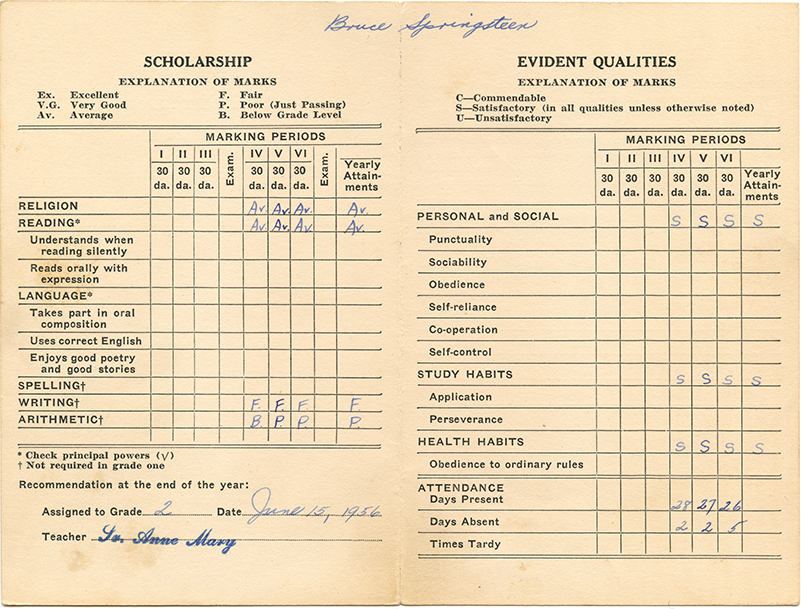 Bruce Springsteen
SCHOLARSHIP
EXPLANATION OF MARKS
Ex. Excellent F. Fair
V.G. Very Good P. Poor (Just Passing)
Av. Average B. Below Grade Level
MARKING PERIODS
I II III Exam. IV V VI Exam. Yearly Attain-ments
30 da. 30 da. 30 da. 30 da. 30 da. 30 da.
RELIGION Av. Av. Av. Av.
READING* Av. Av. Av. Av.
Understands when
reading silently
Reads orally with
expression
LANGUAGE*
Takes part in oral
composition
Uses correct English
Enjoys good poetry
and good stories
SPELLING†
WRITING† F. F. F. F.
ARITHMETIC† B. P. P. P.
* Check principal powers (√)
† Not required in grade one
Recommendation at the end of the year:
Assigned to Grade 2 Date June 15, 1956
Teacher Sr. Anne Mary
EVIDENT QUALITIES
EXPLANATION OF MARKS
C—Commendable
S—Satisfactory (in all qualities unless otherwise noted)
U—Unsatisfactory
MARKING PERIODS
I II III IV V VI Yearly Attain-ments
30 da. 30 da. 30 da. 30 da. 30 da. 30 da.
PERSONAL and SOCIAL S S S S
Punctuality
Sociability
Obedience
Self-reliance
Co-operation
Self-control
STUDY HABITS S S S S
Application
Perseverance
HEALTH HABITS S S S S
Obedience to ordinary rules
ATTENDANCE
Days Present 28 27 26
Days Absent 2 2 5
Times Tardy